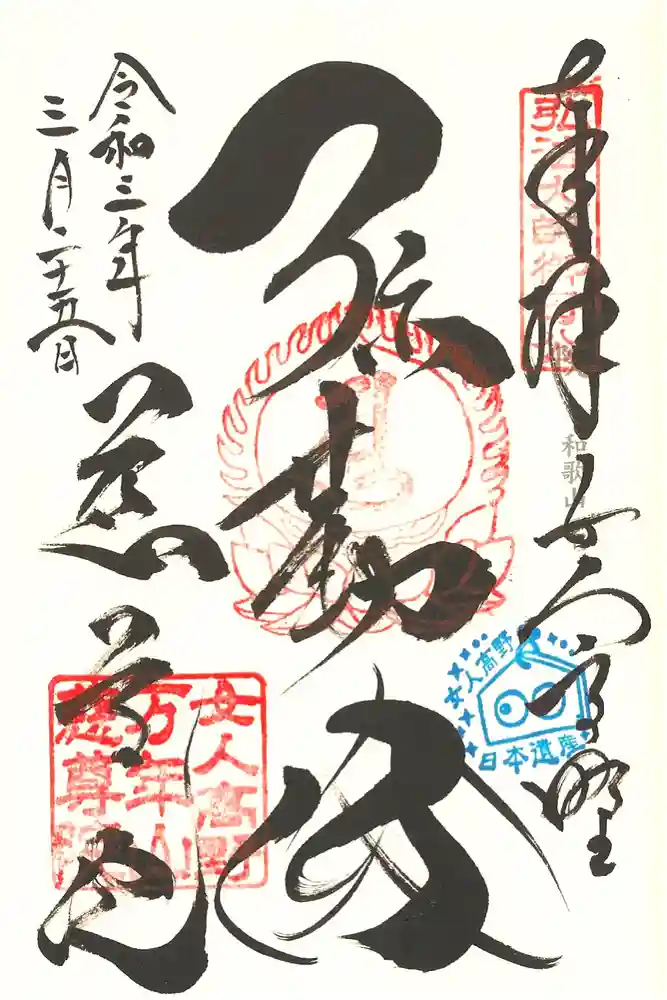 奉拝
女人高野
弥勒佛
令和三年
三月二十五日
慈尊院
弘法大師御母公
和歌山
女人高野
日本遺産
女人高野
万年山
慈尊院